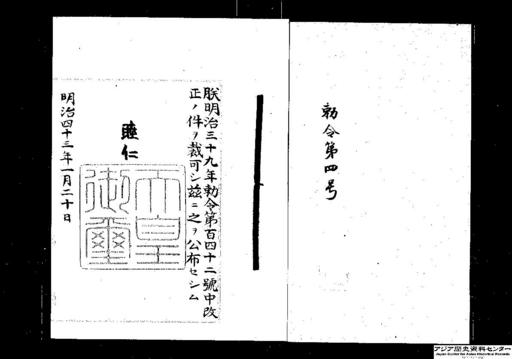 勅令第四号
朕明治三十九年勅令第百四十二號中改
正ノ件ヲ裁可シ茲ニ之ヲ公布セシム
睦仁
天皇御璽
明治四十三年一月二十日
アジア歴史資料センター
Japan Center for Asian Historical Records